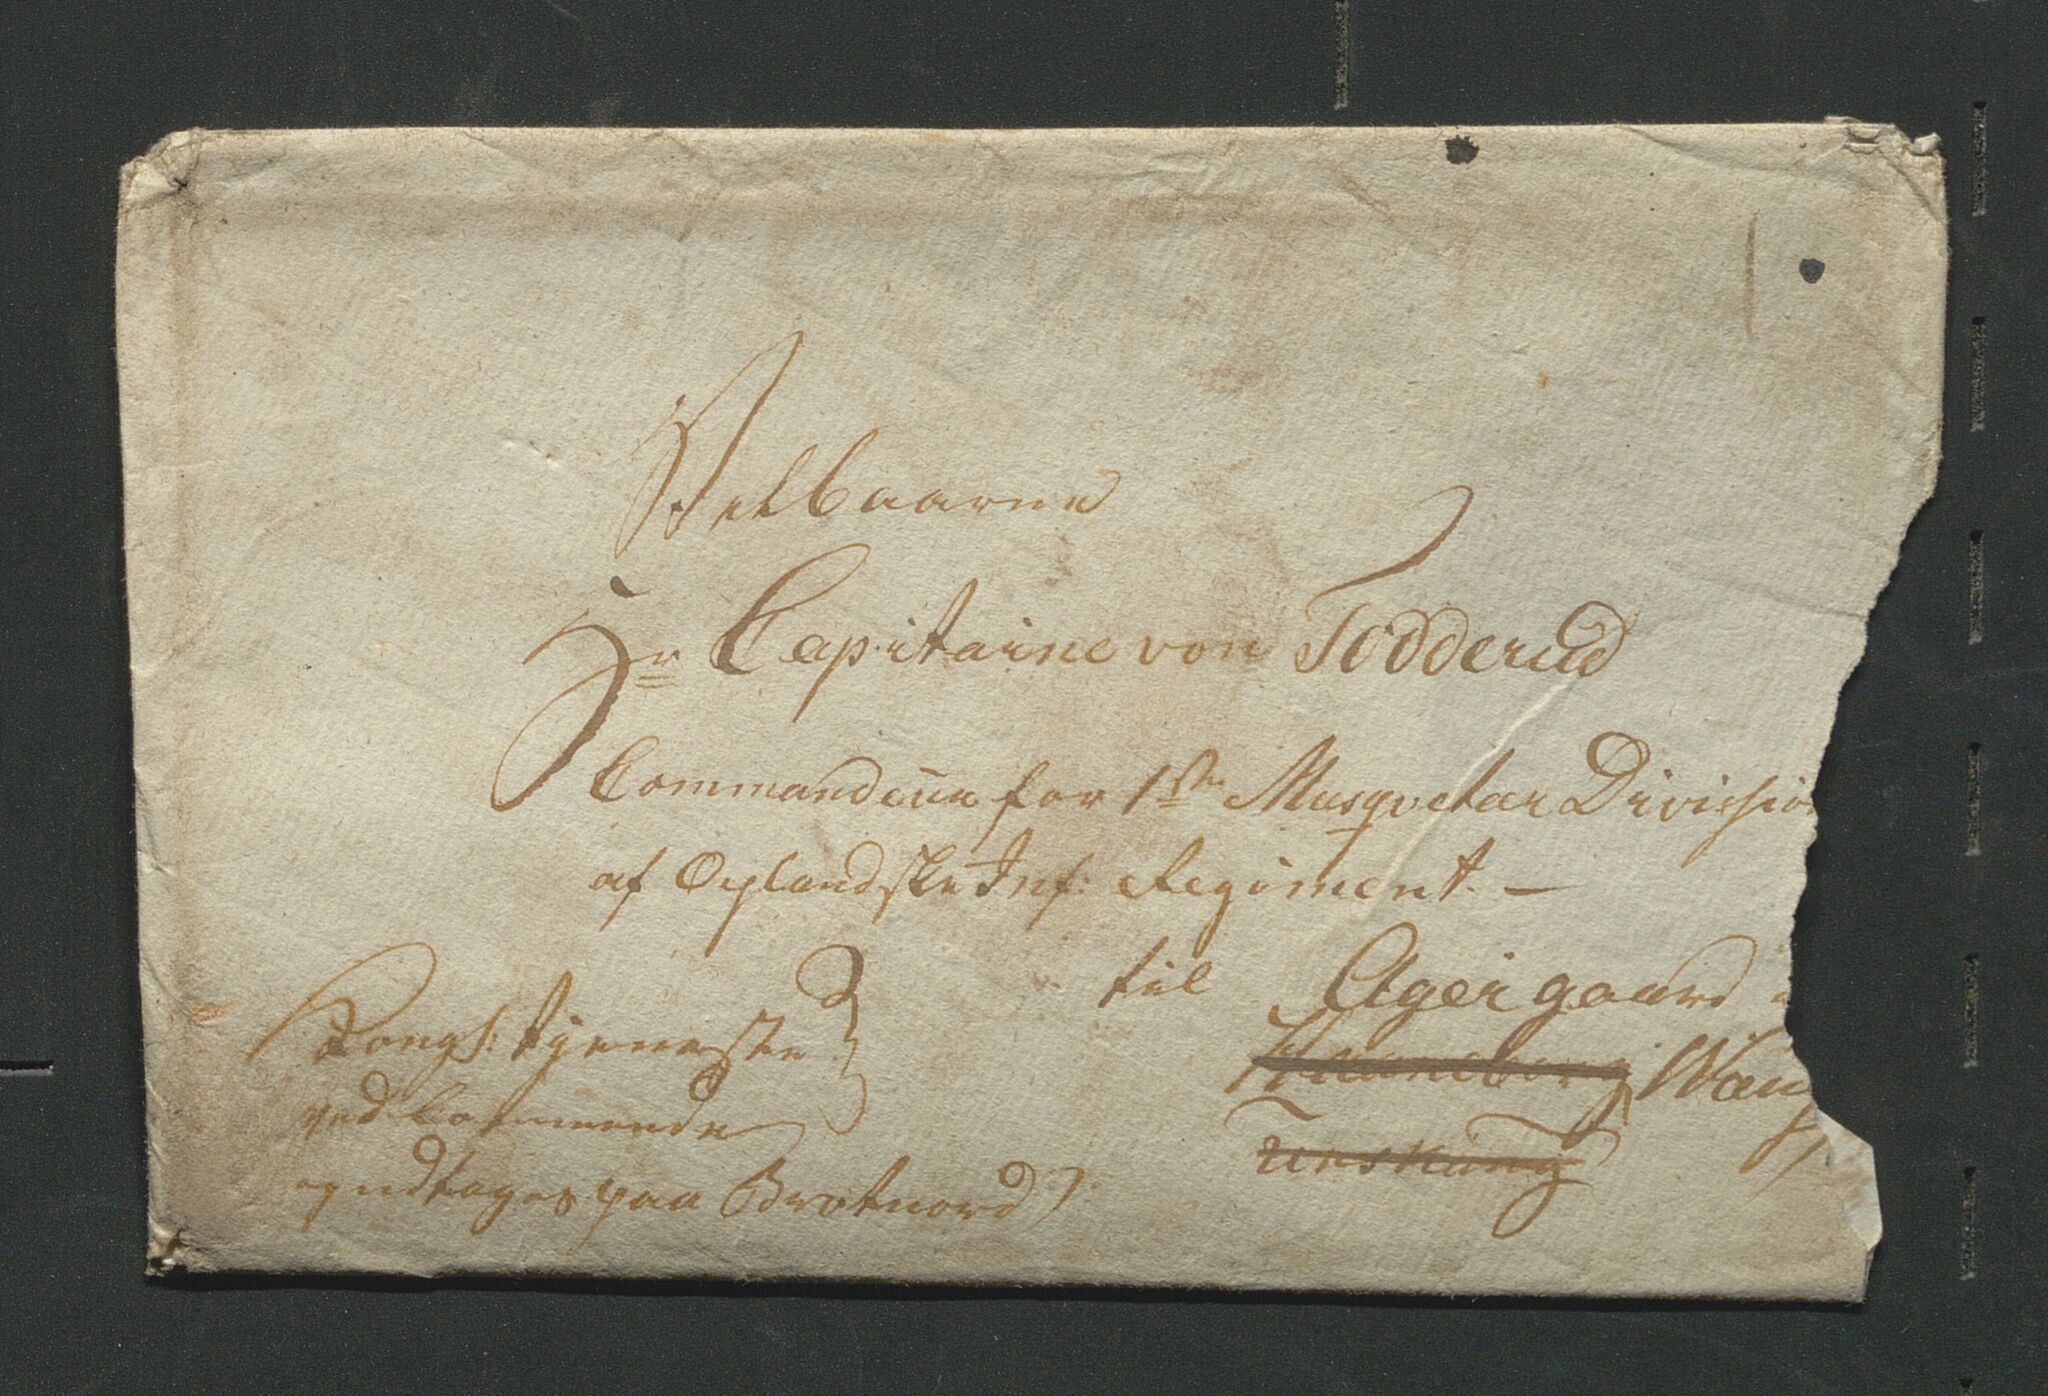 Velbaarne
Hr Capitaine von Todderud
Commandeur for 1ste Musqvetair Division
af Oplandske Inf: Regiment. —
til Agergaard
Kongl: tjeneste
ved Commando
Wang
og udtages paa Brotnord